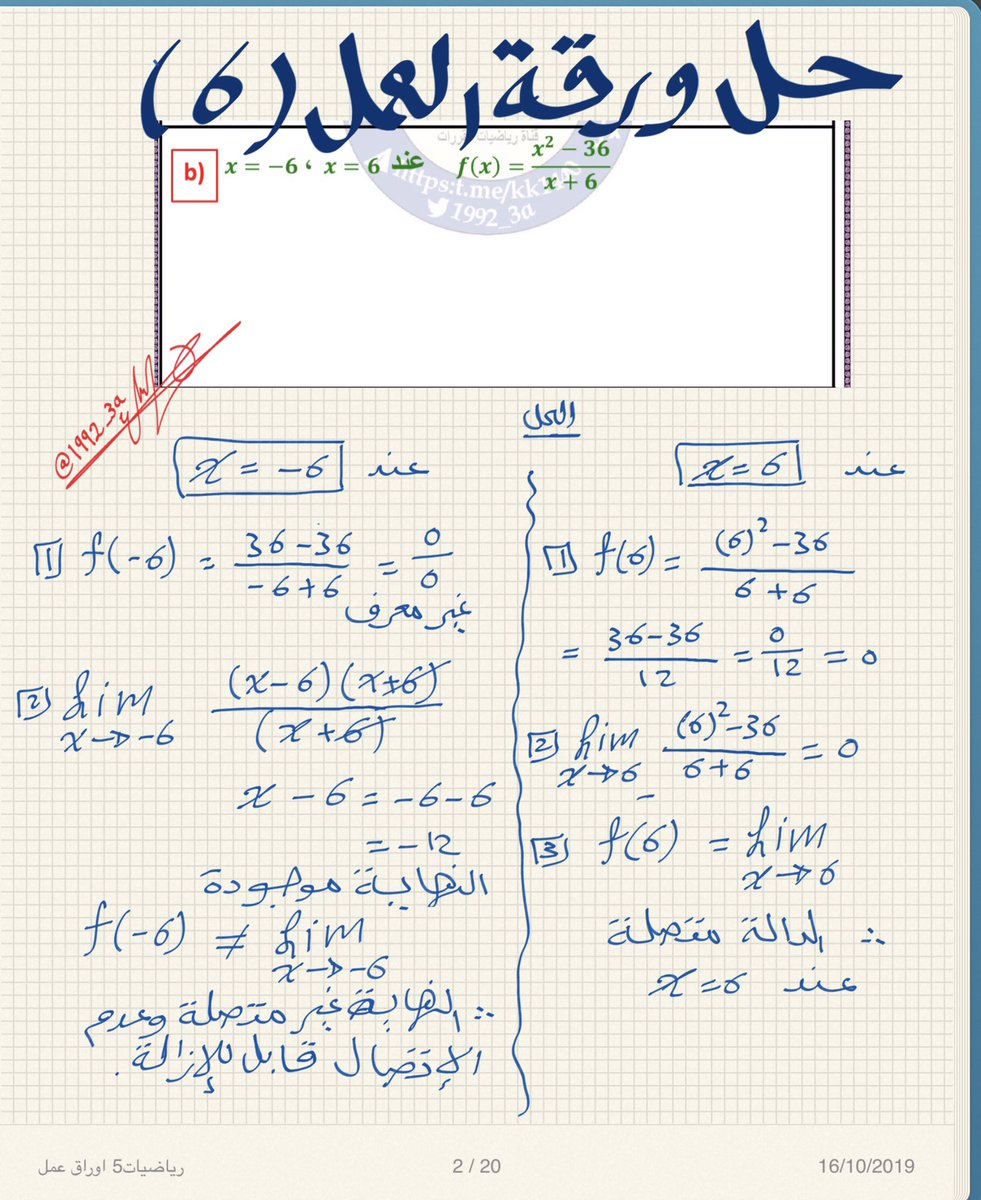 حل ورقة العمل (6)
قناة رياضيات مقررات
b) x = −6 ، x = 6 عند f(x) = (x² − 36)/(x + 6)
https:t.me/kk
1992_3a
@1992_3a
الحل
عند x = 6
[1] f(6) = ((6)² − 36)/(6 + 6)
= (36 − 36)/12 = 0/12 = 0
[2] lim x→6 ((6)² − 36)/(6 + 6) = 0
[3] f(6) = lim x→6
∴ الدالة متصلة
عند x = 6
عند x = −6
[1] f(−6) = (36 − 36)/(−6 + 6) = 0/0
غير معرف
[2] lim x→−6 (x − 6)(x + 6)/(x + 6)
x − 6 = −6 − 6
= −12
النهاية موجودة
f(−6) ≠ lim x→−6
∴ النهاية غير متصلة وعدم
الإتصال قابل للإزالة.
رياضيات5 اوراق عمل
2 / 20
16/10/2019